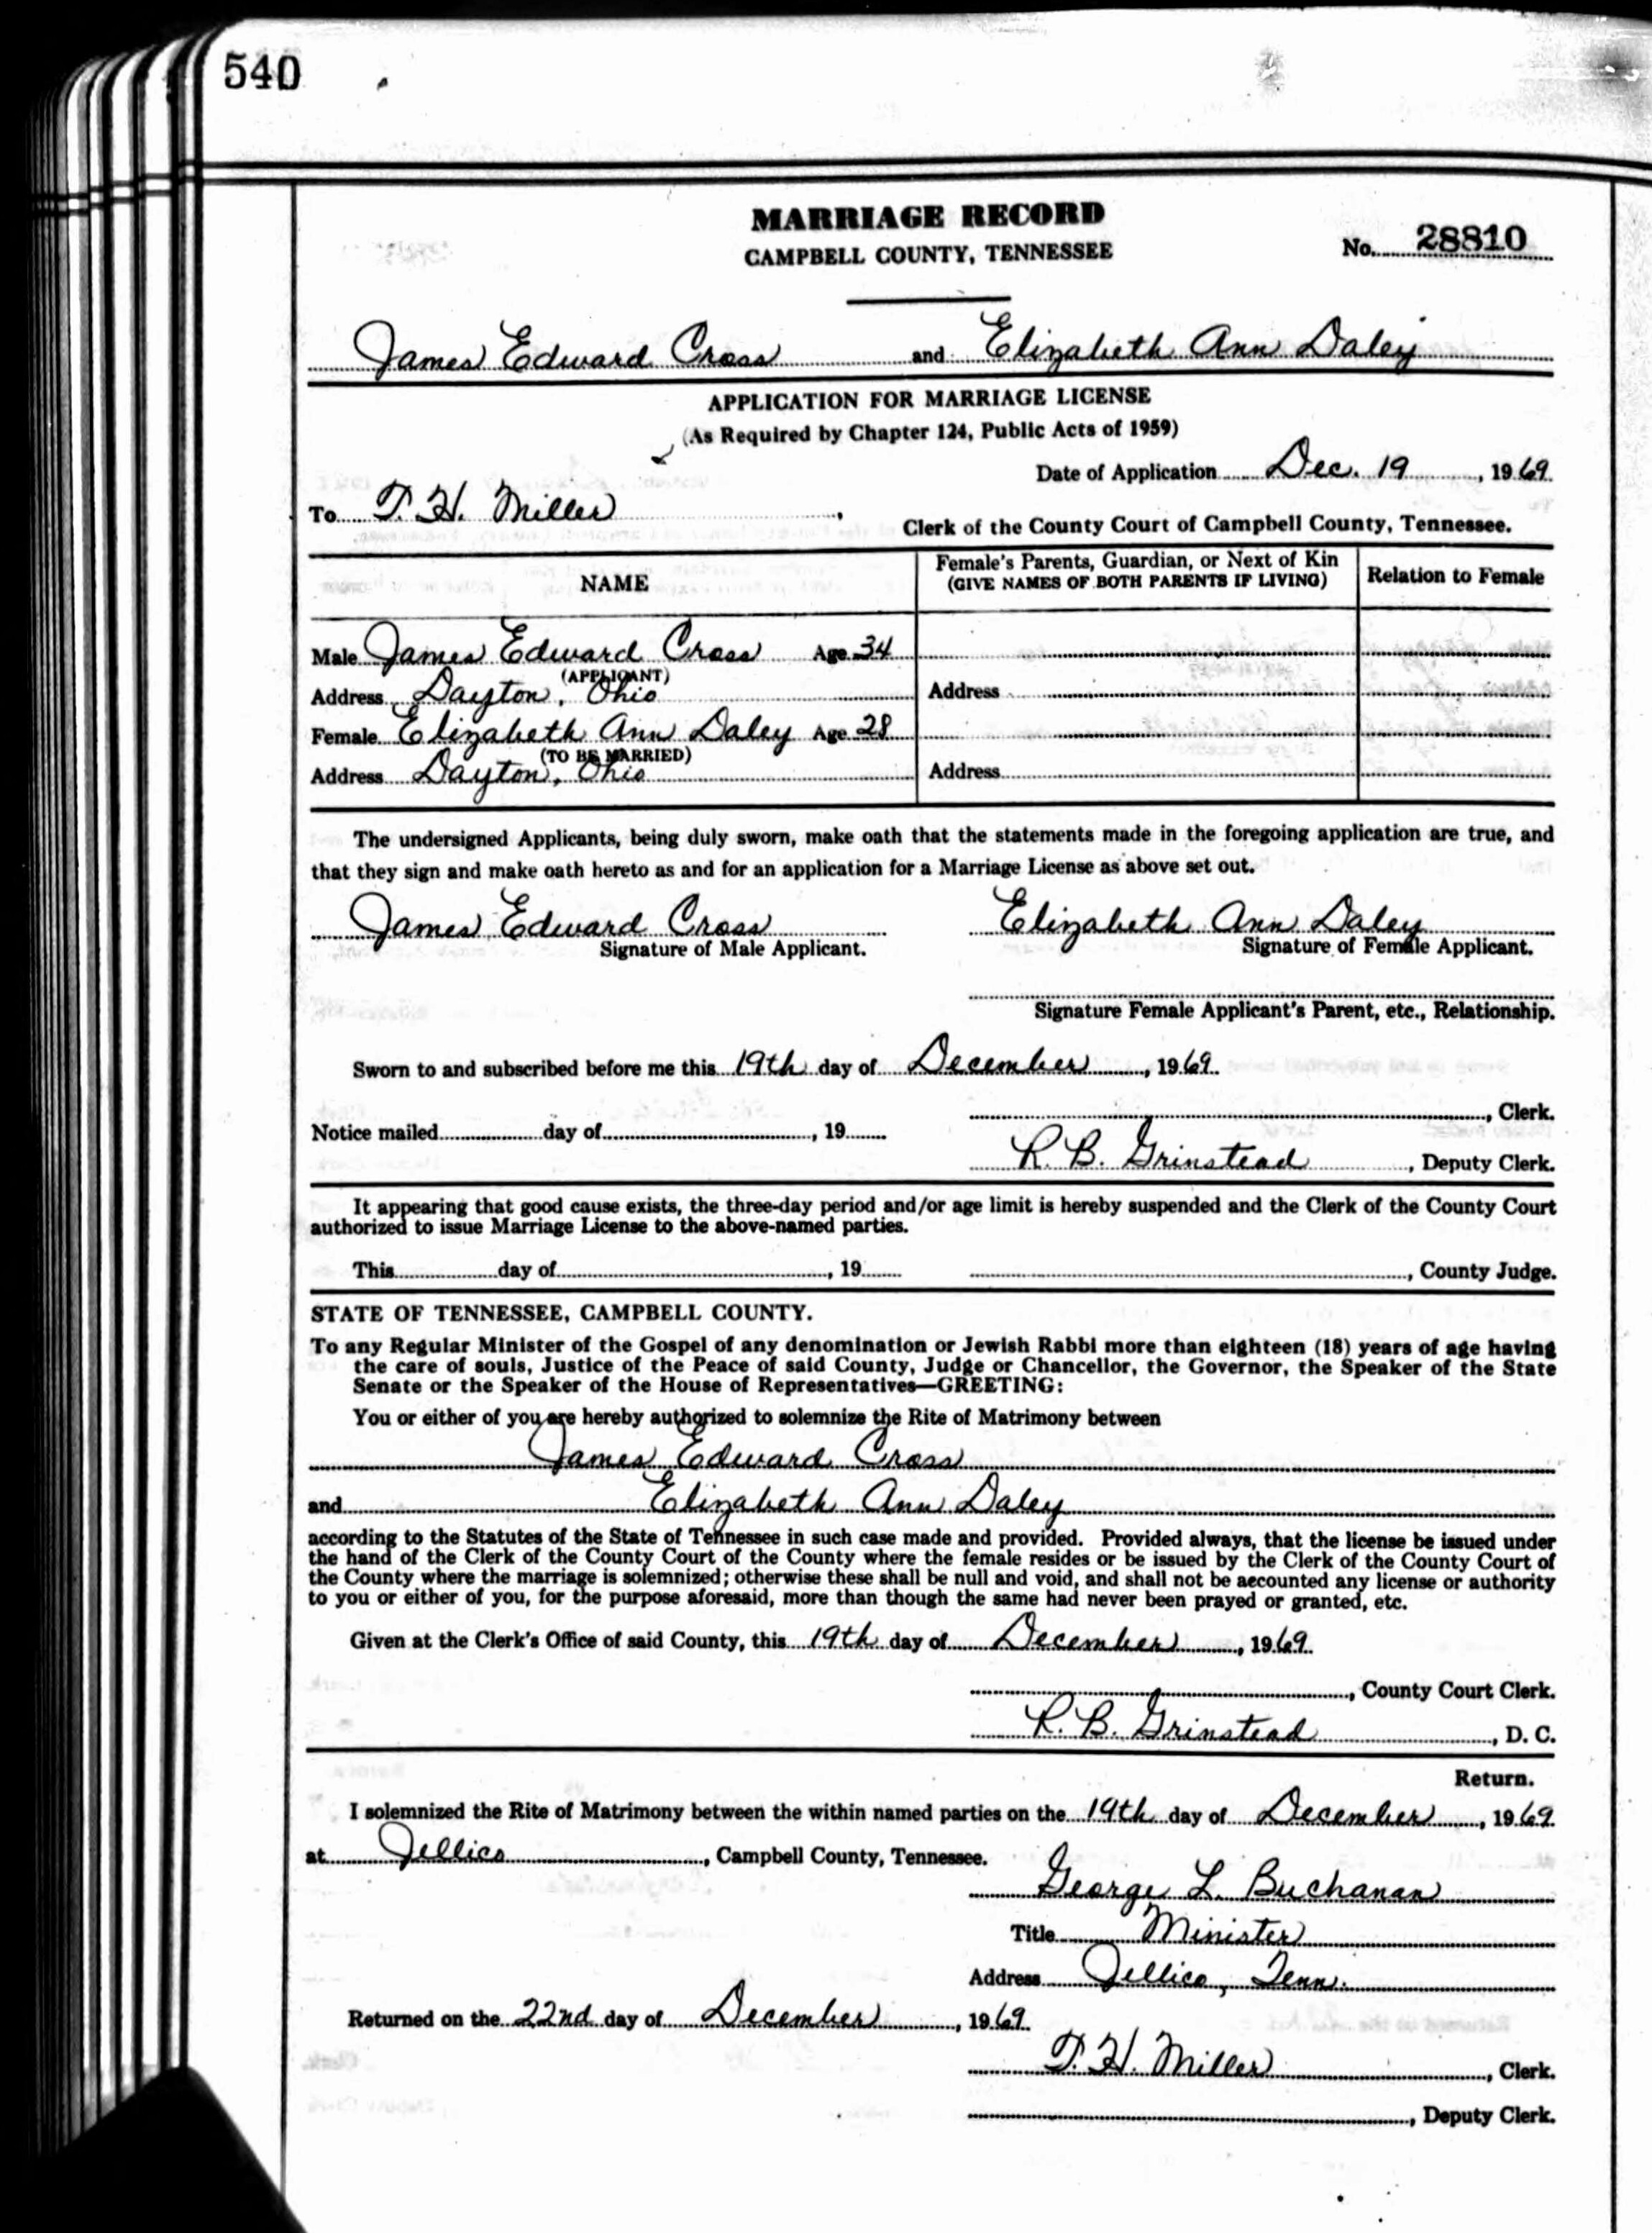 540
MARRIAGE RECORD
CAMPBELL COUNTY, TENNESSEE
No. 28810
James Edward Cross and Elizabeth Ann Daley
APPLICATION FOR MARRIAGE LICENSE
(As Required by Chapter 124, Public Acts of 1959)
Date of Application Dec. 19, 1969
To T. H. Miller, Clerk of the County Court of Campbell County, Tennessee.
NAME
Female's Parents, Guardian, or Next of Kin
(GIVE NAMES OF BOTH PARENTS IF LIVING)
Relation to Female
Male James Edward Cross Age 34
(APPLICANT)
Address Dayton, Ohio Address
Female Elizabeth Ann Daley Age 28
(TO BE MARRIED)
Address Dayton, Ohio Address
The undersigned Applicants, being duly sworn, make oath that the statements made in the foregoing application are true, and
that they sign and make oath hereto as and for an application for a Marriage License as above set out.
James Edward Cross Elizabeth Ann Daley
Signature of Male Applicant. Signature of Female Applicant.
Signature Female Applicant's Parent, etc., Relationship.
Sworn to and subscribed before me this 19th day of December, 1969.
, Clerk.
Notice mailed day of , 19
R. B. Grinstead, Deputy Clerk.
It appearing that good cause exists, the three-day period and/or age limit is hereby suspended and the Clerk of the County Court
authorized to issue Marriage License to the above-named parties.
This day of , 19 , County Judge.
STATE OF TENNESSEE, CAMPBELL COUNTY.
To any Regular Minister of the Gospel of any denomination or Jewish Rabbi more than eighteen (18) years of age having
the care of souls, Justice of the Peace of said County, Judge or Chancellor, the Governor, the Speaker of the State
Senate or the Speaker of the House of Representatives—GREETING:
You or either of you are hereby authorized to solemnize the Rite of Matrimony between
James Edward Cross
and Elizabeth Ann Daley
according to the Statutes of the State of Tennessee in such case made and provided. Provided always, that the license be issued under
the hand of the Clerk of the County Court of the County where the female resides or be issued by the Clerk of the County Court of
the County where the marriage is solemnized; otherwise these shall be null and void, and shall not be accounted any license or authority
to you or either of you, for the purpose aforesaid, more than though the same had never been prayed or granted, etc.
Given at the Clerk's Office of said County, this 19th day of December, 1969.
, County Court Clerk.
R. B. Grinstead, D. C.
Return.
I solemnized the Rite of Matrimony between the within named parties on the 19th day of December, 1969
at Jellico, Campbell County, Tennessee.
George L. Buchanan
Title Minister
Address Jellico, Tenn.
Returned on the 22nd day of December, 1969.
T. H. Miller, Clerk.
, Deputy Clerk.